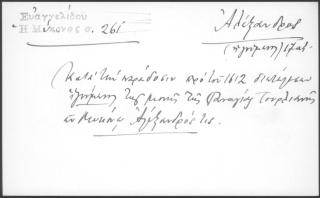 Εὐαγγελίδου
Ἡ Μύκονος σ. 261
Ἀλέξανδρος
(ἡγούμενος) 17ος
Κατὰ τὴν παράδοσιν πρὸ τοῦ 1612 διετέλεσεν
ἡγούμενος τῆς μονῆς τῆς Παναγίας Τουρλιανῆς
ἐν Μυκόνῳ Ἀλέξανδρός τις.